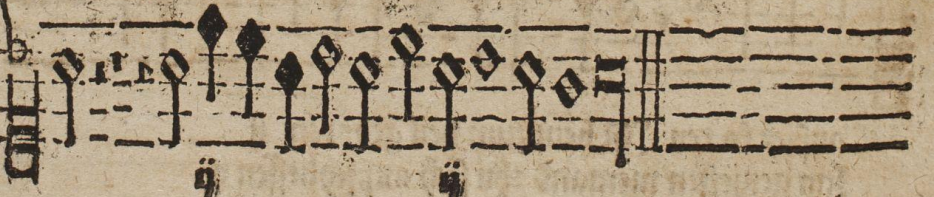 ij ij